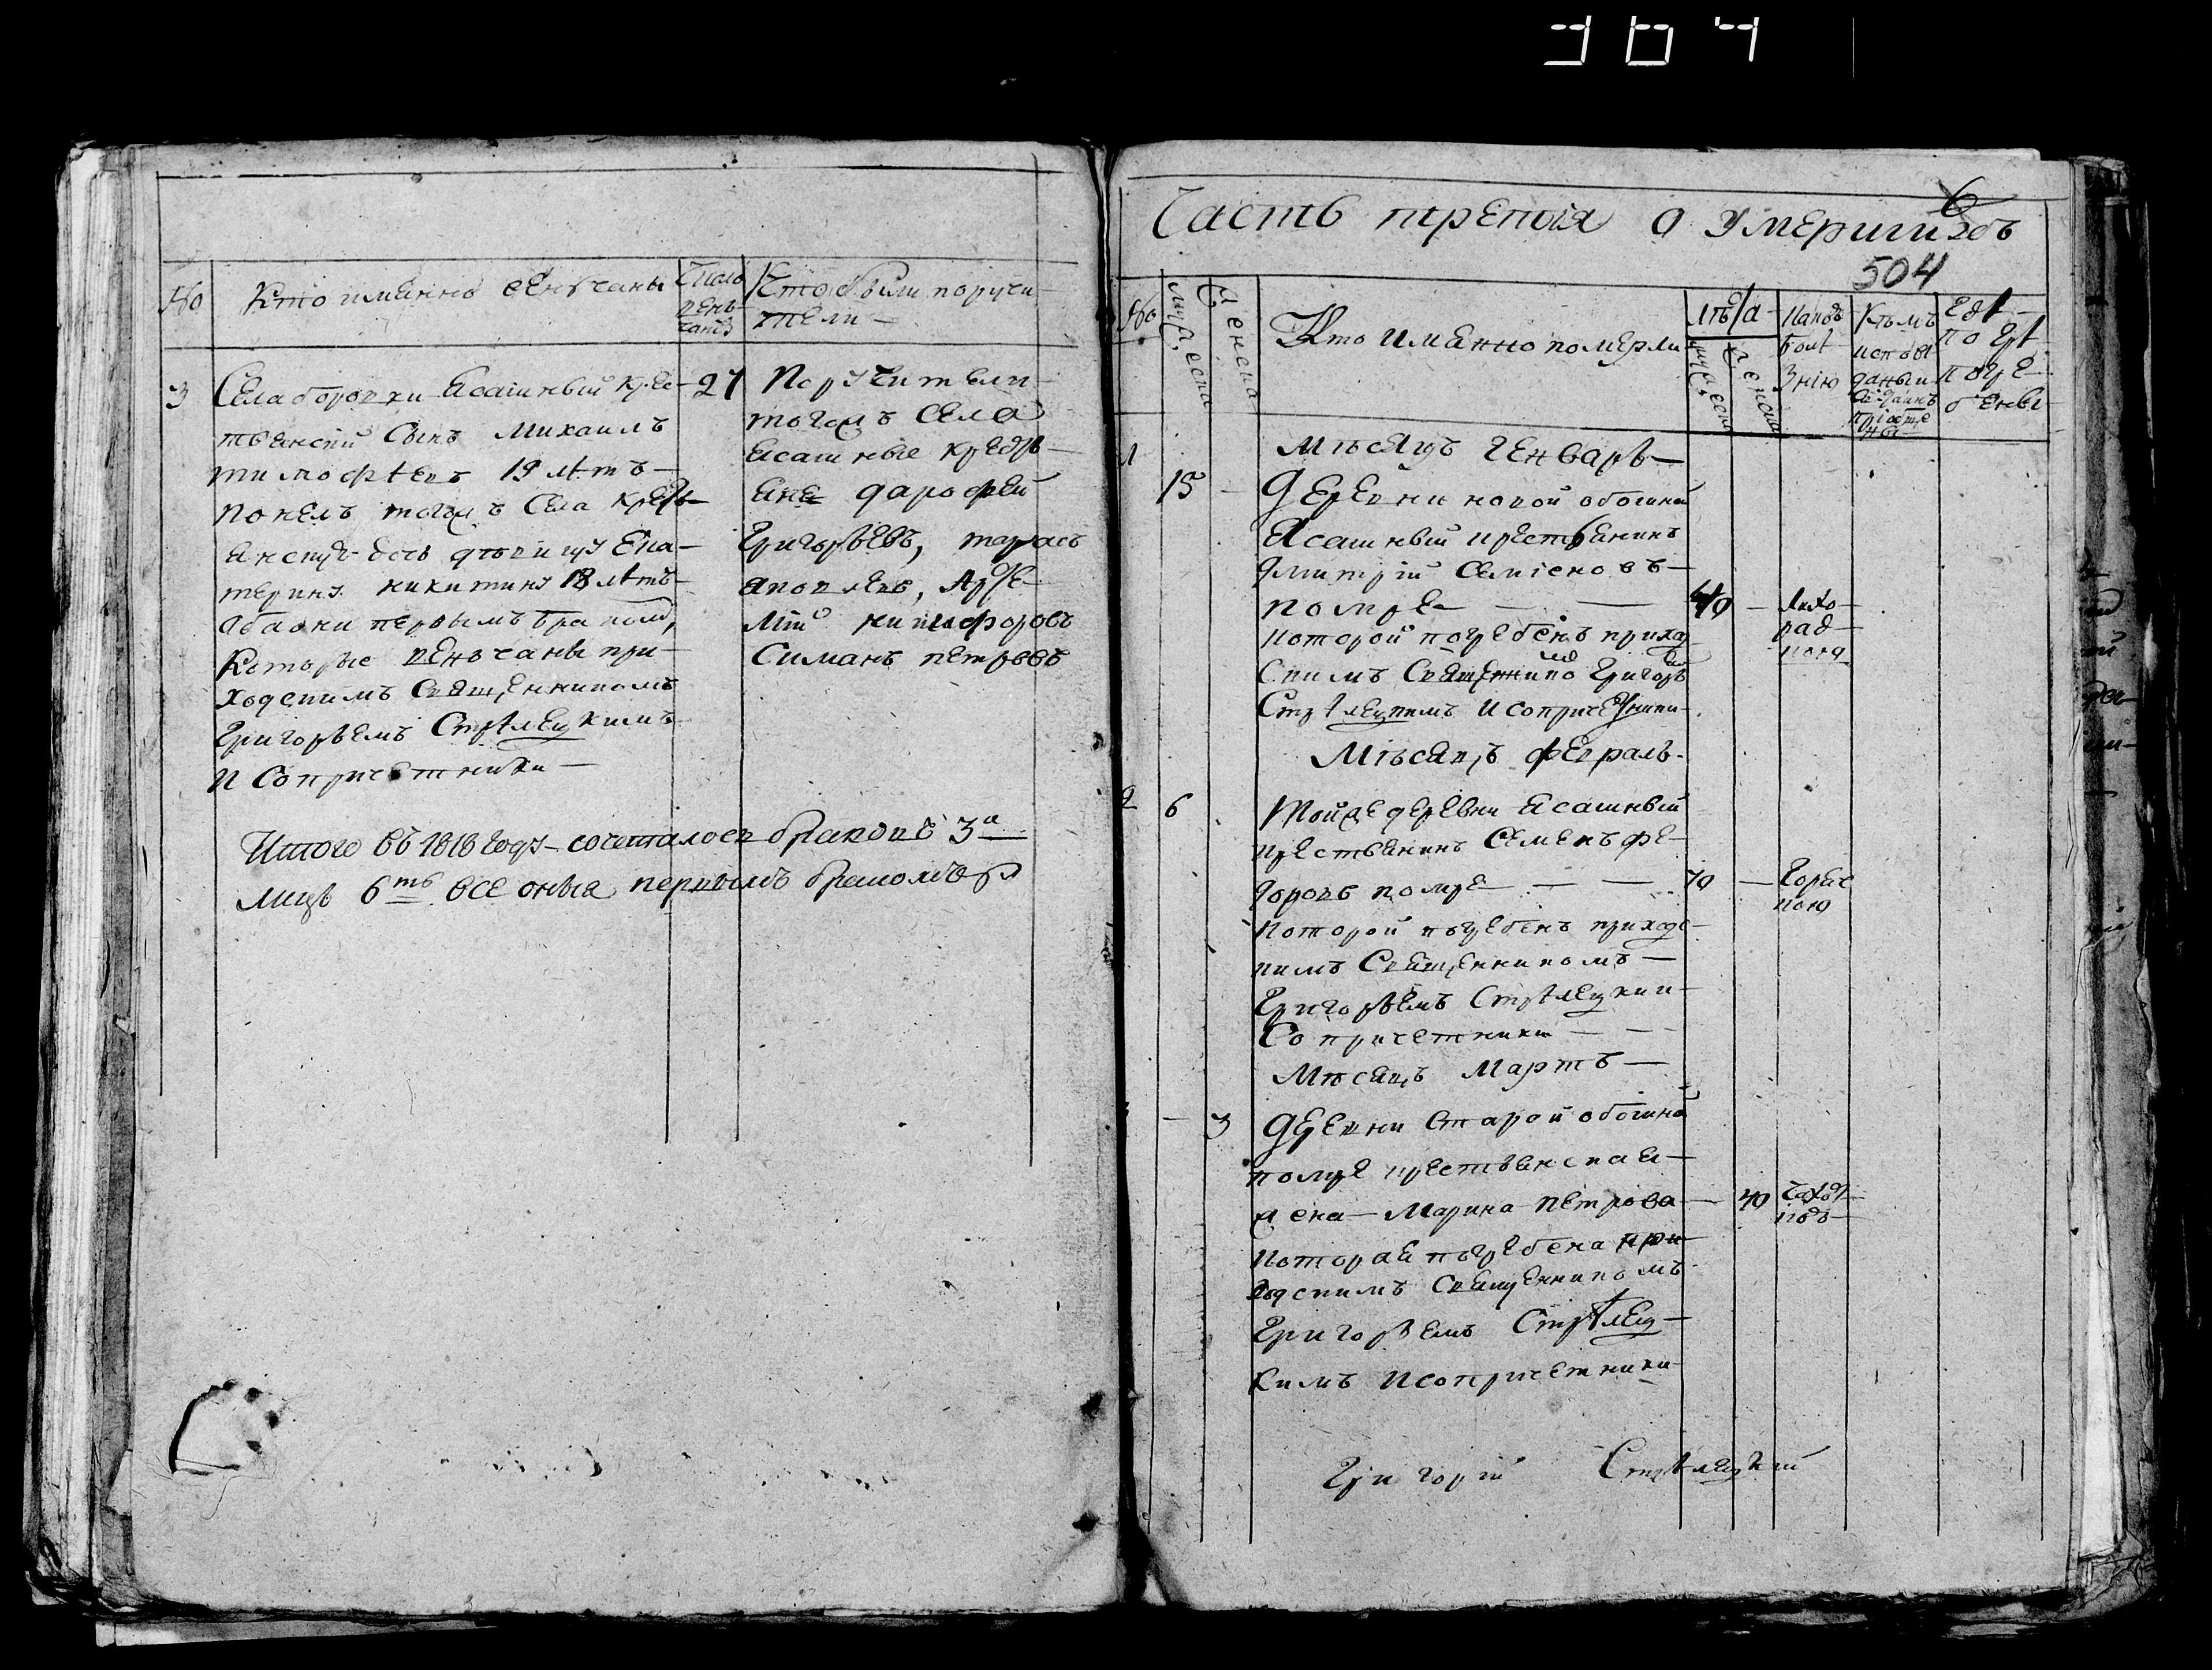 364
№
Кто имянно венчаны
Число
вен-
чанiя
Кто были поручи
тели
3
Села боровки Ясашный Кре-
27
стьянскiй Сынъ Михаилъ
тимофѣевъ 19 лѣтъ
понелъ тогожъ Села Крестья-
янскую дочь дѣвицу Ека-
терину никитину 18 лѣтъ
оба они первымъ бракомъ,
Которые венчаны при-
ходскимъ Священникомъ
Григорьемъ Стрѣлецкимъ
И Сопричетники
Поручители
тогожъ Села
Ясашные Крестья
яне дарофей
Григорьевъ, тарасъ
яковлевъ,
никифоровъ
Симанъ петровъ
Итого въ 1818 году сочеталося браковъ 3а
Лицъ 6ть все оныя первымъ бракомъ
Часть третiя О Умершихъ
6
504
№
мужеска
Женска
Кто имянно померли
лѣта
мужеска
Женска
Какою
болѣ
знiю
Кѣмъ
исповѣ
даны и
прiобще
ны
гдѣ
и
погре
бены
1
Мѣсяцъ Генварь
15
Деревни новой
Ясашный крестьянинъ
Дмитрiй Семiоновъ
помре
40
Лихо
рад
кою
которой погребенъ приход
скимъ Священнико мъ Григорь емъ
Стрѣлецкимъ И сопричетники
Мѣсяцъ февраль
2
6
Тойже деревни Ясашный
крестьянинъ Семенъ фе-
доровъ помре
70
Горяч
кою
которой погребенъ приходс-
кимъ Священникомъ
Григорьемъ Стрѣлецкий
Со причетники
Мѣсяцъ Мартъ
3
Деревни Старой
помре крестьянская
жена Марина петрова
40
которая погребена при-
ходскимъ Священникомъ
Григорьемъ Стрѣлец-
кимъ И сопричетники
Григорiй Стрѣлецкiй